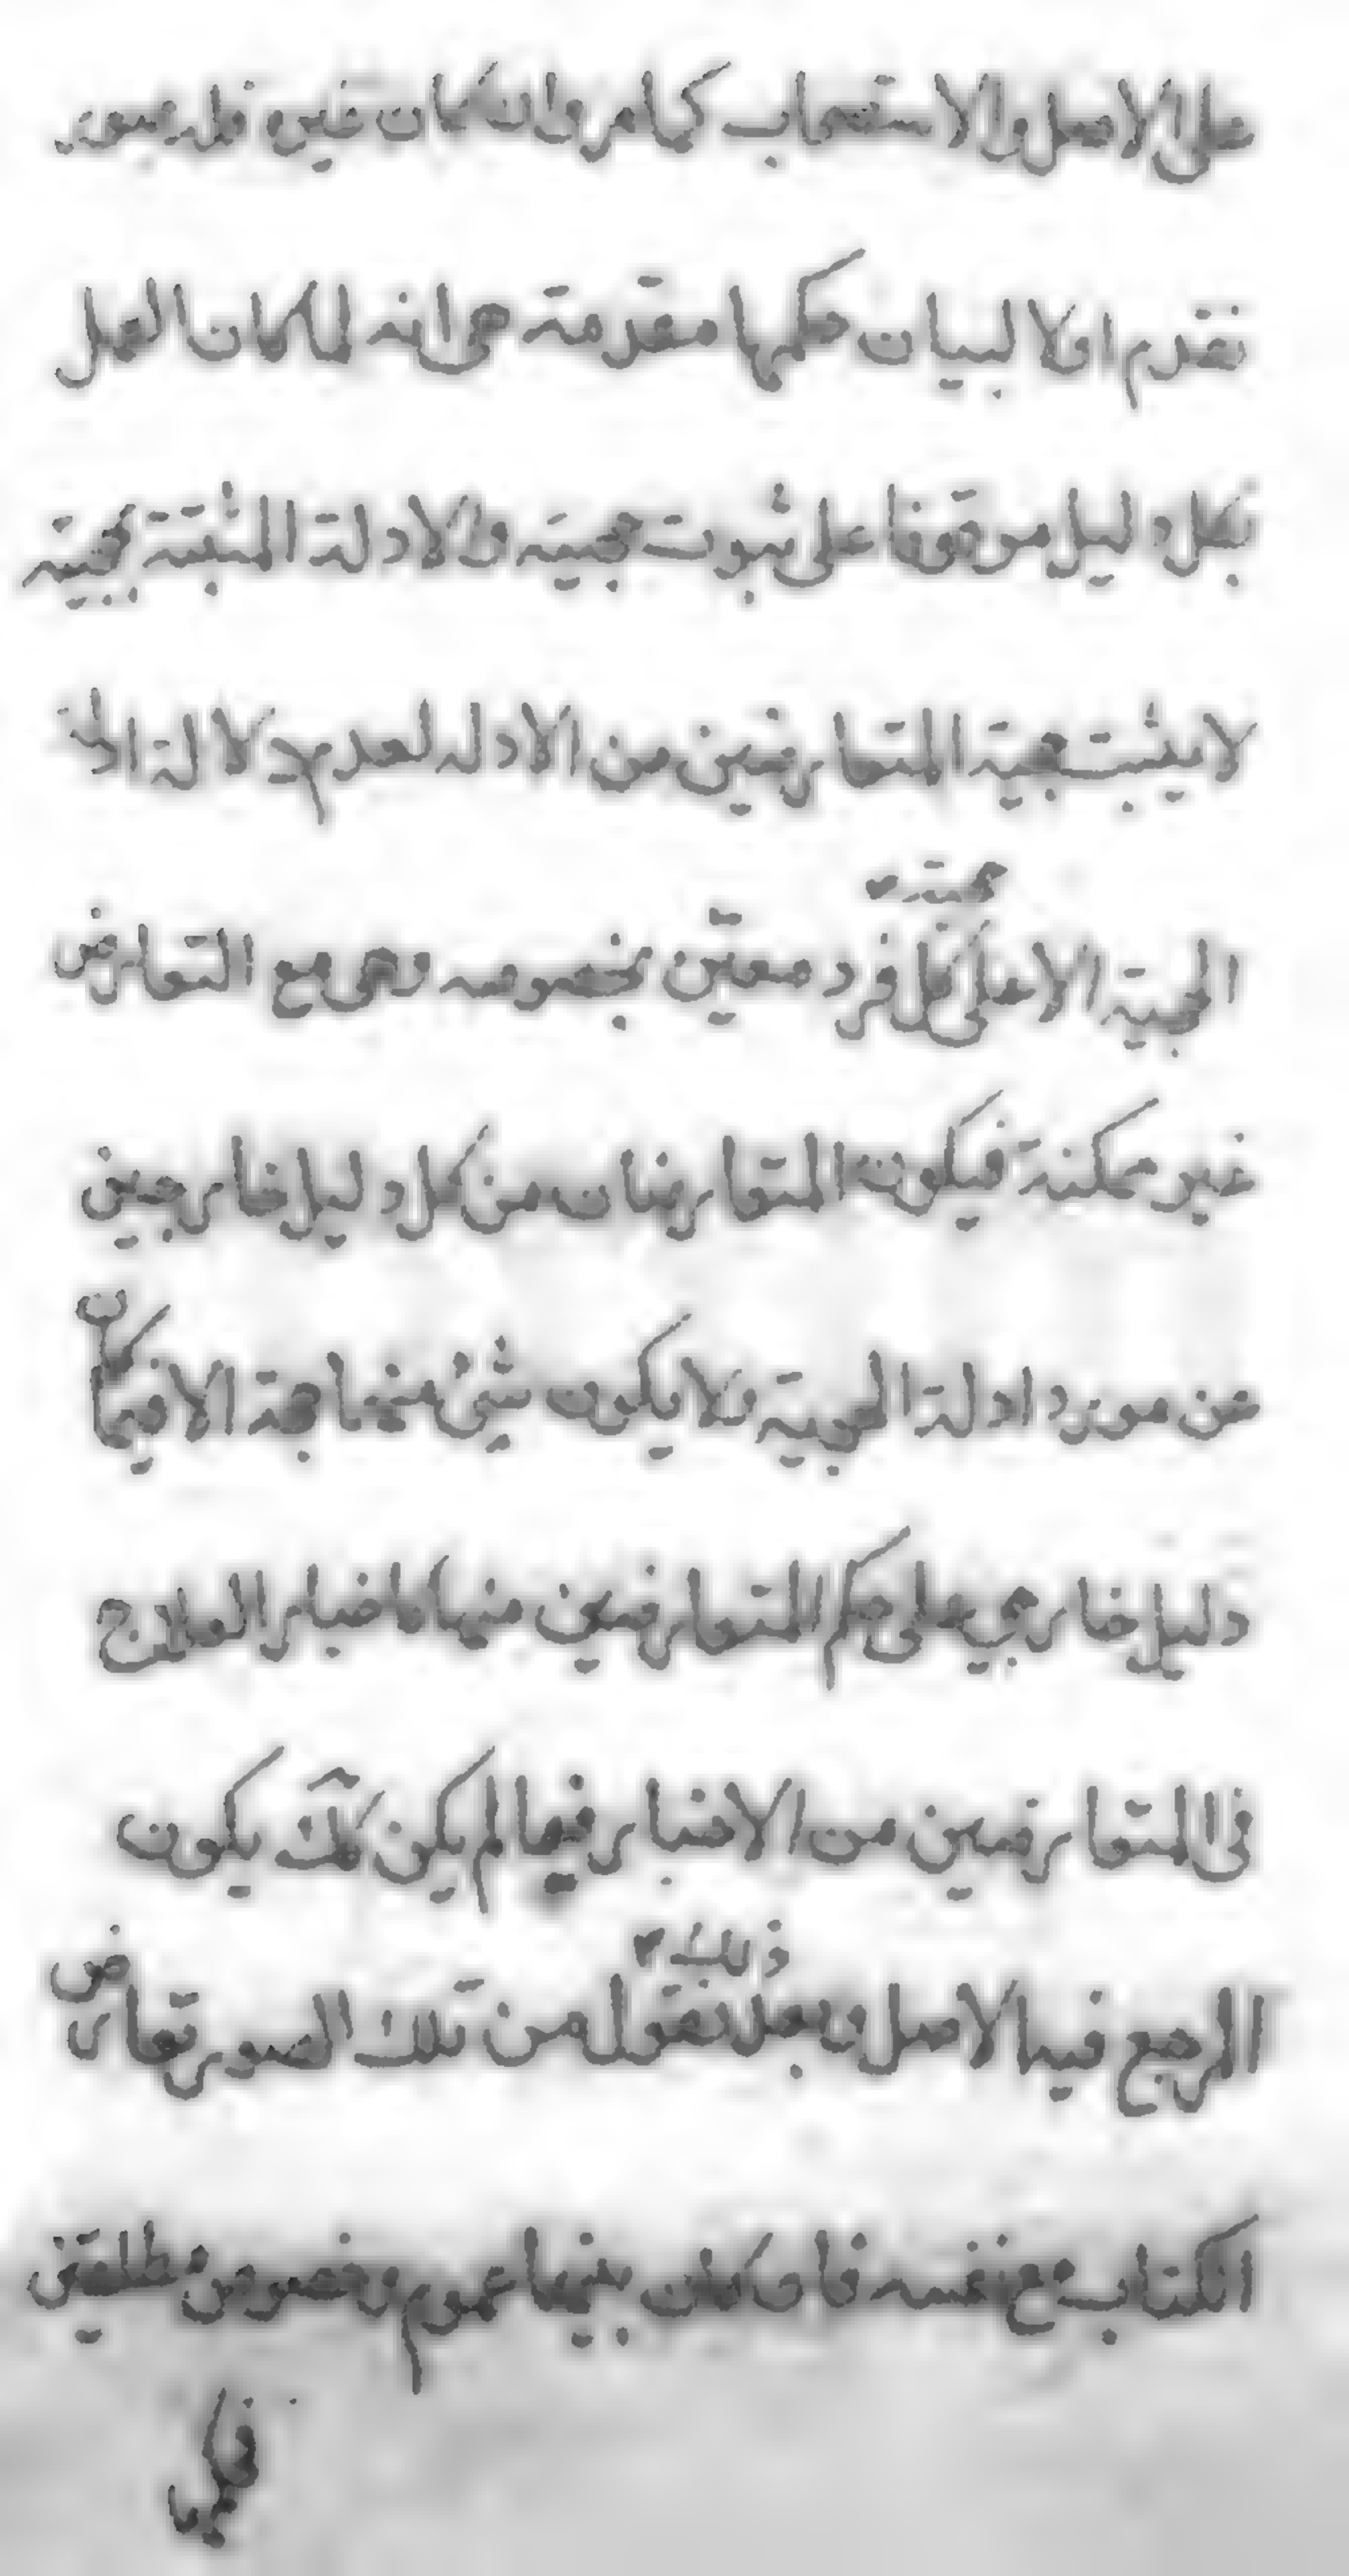 على الاصل والاستصحاب كما مر وان كان غيره فله صور
نقدم اولا لبيان حكمها مقدمة هى انه لما كان العمل
بكل دليل موقوفا على ثبوت حجيته والادلة المثبتة لحجية
لا يثبت حجية المتعارضين من الادله لعدم دلالة ادلة
حجيته
الحجية الا على كل فرد معيّن بخصوصه وهى مع التعارض
غير ممكنة فيكون المتعارضان من كل دليل خارجين
عن مورد ادلة الحجية ولا يكون شئ منهما حجة الا فيما كان
دليل خارجي على حكم المتعارضين منها كاخبار العلاج
فى المتعارضين من الاخبار فيما لم يكن كك يكون
ذلك
المرجع فيه الاصل وبعد نقول من تلك الصور تعارض
الكتاب مع نفسه فان كان بينهما عموم وخصوص مطلقين